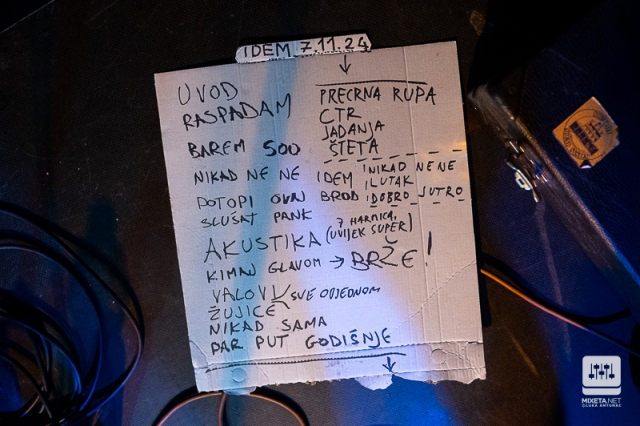 IDEM 7.11.24
UVOD
RASPADAM
BAREM 500
NIKAD NE NE
POTOPI OVAJ BROD
SLUŠAT PANK
AKUSTIKA (7 HARMICA, UVIJEK SUPER)
KIMAJ GLAVOM → BRŽE!
VALOVI
SVE ODJEDNOM
ŽUJICE
NIKAD SAMA
PAR PUT GODIŠNJE
PRECRNA RUPA
CTR
JADANJA
ŠTETA
IDEM
NIKAD NE NE
LUTAK
DOBRO JUTRO
MIXETA.NET